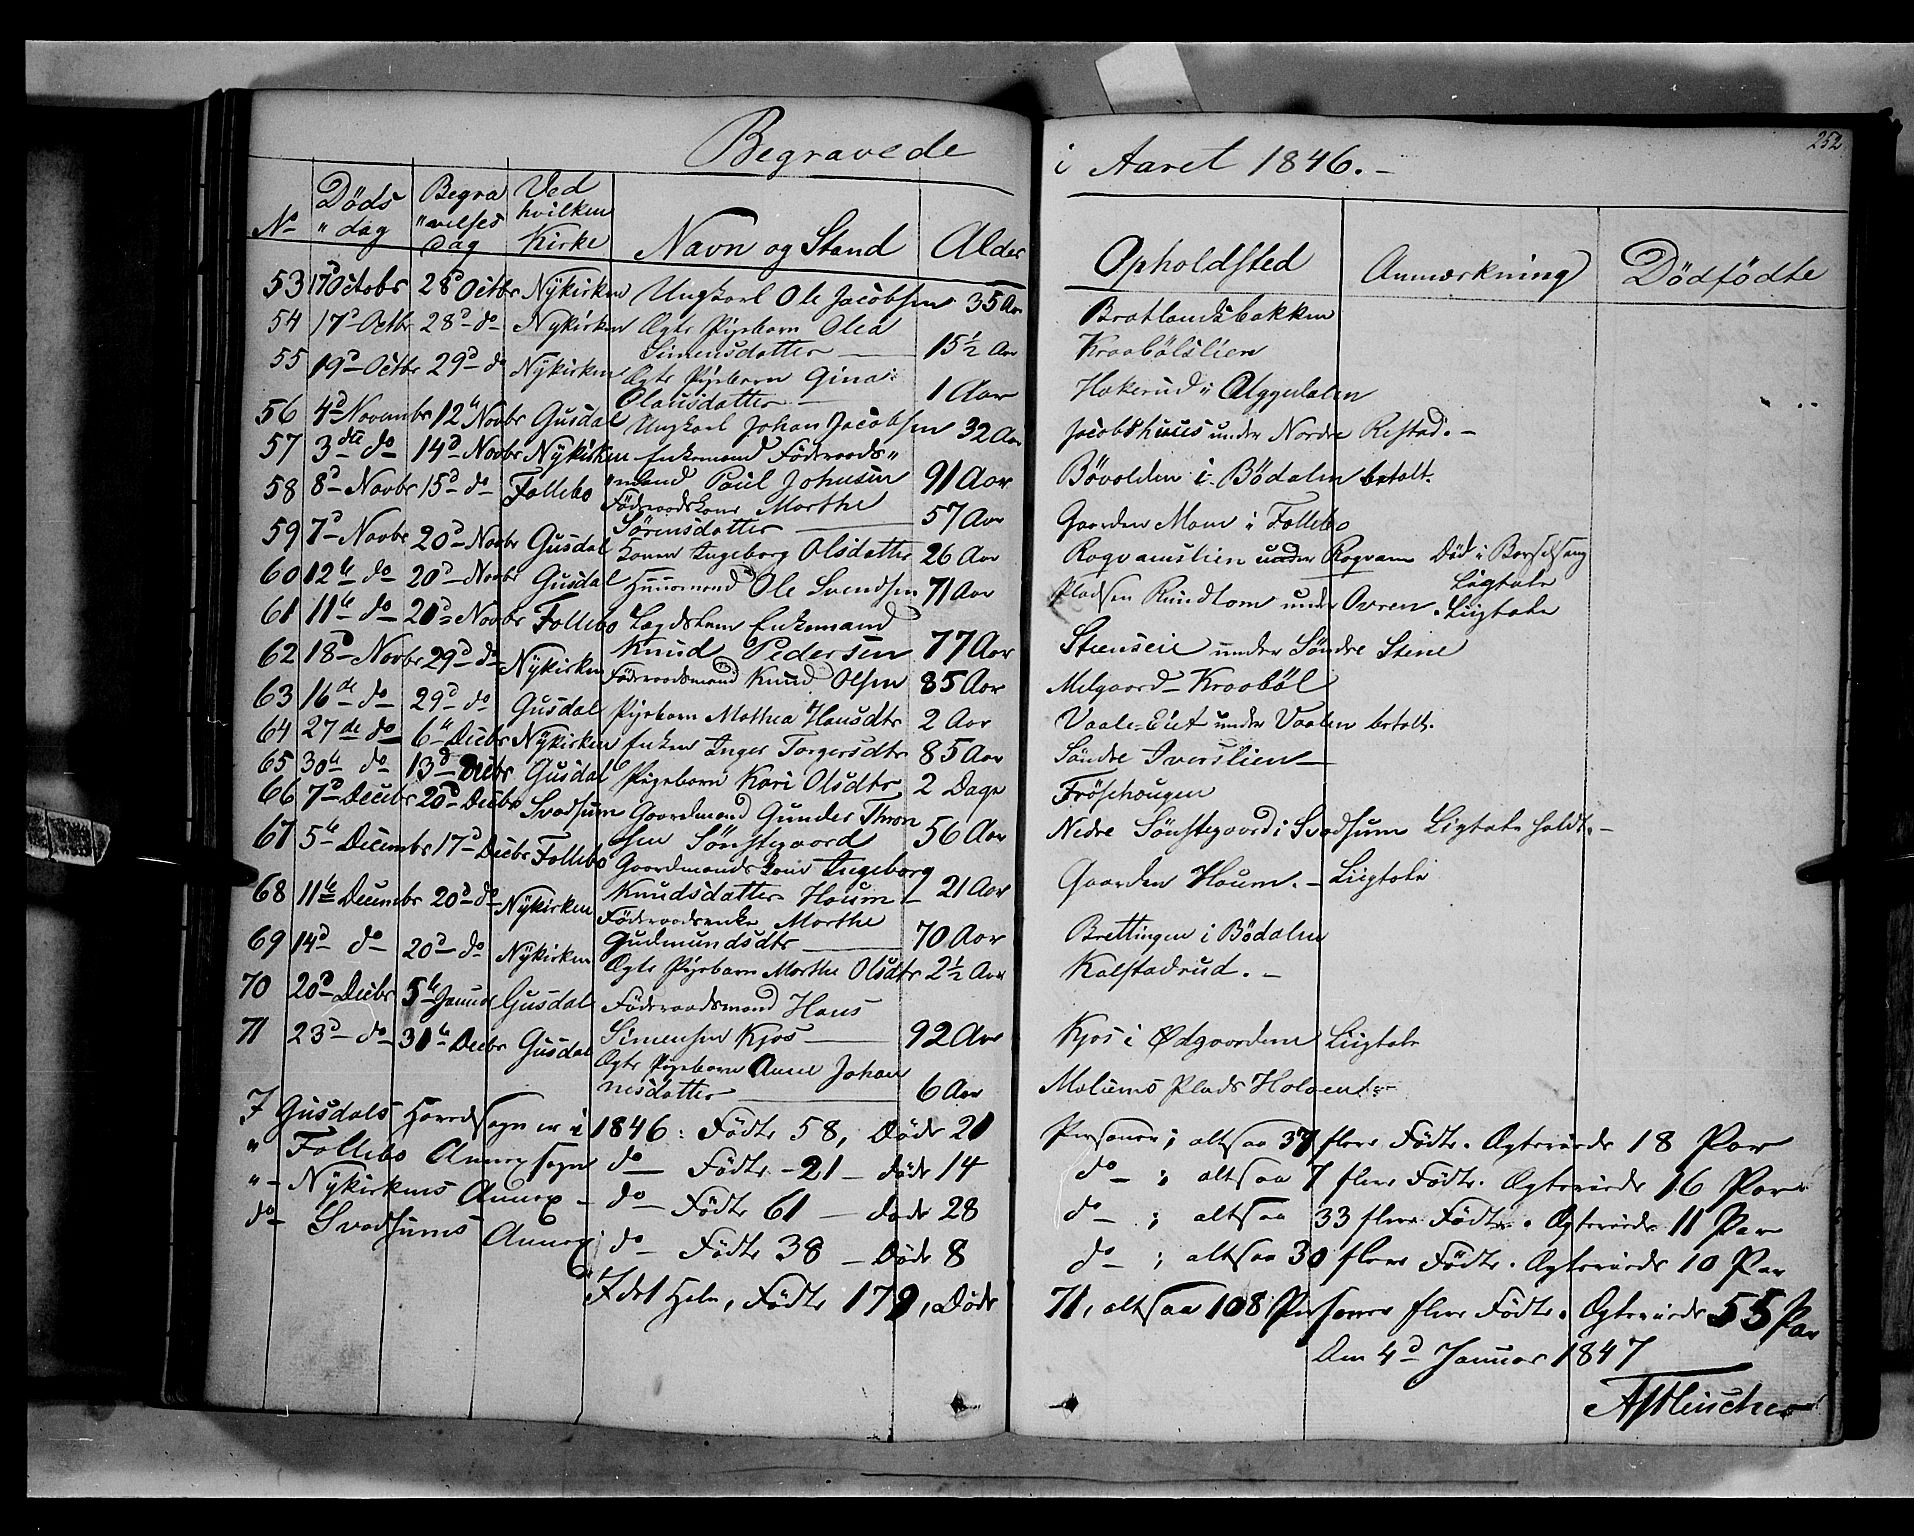 Begravede
i Aaret 1846.-
252
No
Døds
" dag
Begra
"velses
Dag
Ved
hvilken
Kirke
Navn og Stand
Alder
Opholdsted
Anmærkning
Dödfödte
53 17d Octobr 28d Octbr Nykirken Ungkarl Ole Jacobsen 35 Aar Bratlandsbakken
54 17d Octbr 28d do Nykirken Ægte Pigebarn Olea
Simensdatter — 15½ Aar Kraabölslien
55 19d Octbr 29d do Nykirken Ægte Pigebarn Gina
Olausdatter — 1 Aar Hakerud i Alggedalen
56 4d Novembr 12te Novbr Gusdal Ungkarl Johan Jacobsen 32 Aar Jacobshuus under Nordre Restad.-
57 3die do 14d Novbr Nykirken Enkemand Föderaads"
"mand Poul Johnsen 91 Aar Bövolden i Bödalen betalt.
58 8d Novbr 15d do Follebo Föderaadskone Marthe
Sörensdatter — 57 Aar Gaarden Moen i Follebo
59 7d Novbr 20d Novbr Gusdal Konen Ingeborg Olsdatter 26 Aar Rogvamslien under Rogvam Död i Barselseng
Liigtale
60 12te do 20d Novbr Gusdal Huusmand Ole Svendsen 71 Aar Pladsen Rundtom under Avren. Liigtale
61 11te do 20d Novbr Follebo Lægdslem Enkemand
Knud Pedersen 77 Aar Steenseie under Söndre Steine
62 18d Novbr 29d do Nykirken Föderaadsmand Knud Olsen 85 Aar Melgaard Kraaböl
63 16de do 29d do Gusdal Pigebarn Mathea Hansdtr 2 Aar Vaale-Eiet under Vaalen betalt.
64 27de do 6te Decbr Nykirken Enken Inger Torgersdtr 85 Aar Söndre Iverslien
65 30te do 13d Decbr Gusdal Pigebarn Kari Olsdtr 2 Dage Fröisehougen
66 7d Decbr 20d Decbr Svadsum Gaardmand Gunder Thron
sen Sönstegaard 56 Aar Nedre Sönstegaard i Svadsum Liigtale holdt.-
67 5te Decembr 17d Decbr Follebo Gaardmands Kone Ingeborg
Knudsdatter Houm 21 Aar Gaarden Houm.- Liigtale
68 11te Decembr 20d do Nykirken Föderaadsenke Marthe
Gudmundsdtr — 70 Aar Brettingen i Bödalen
69 14d do 20d do Nykirken Ægte Pigebarn Marthe Olsdtr 2½ Aar Kalstadrud.-
70 20d Decbr 5te Januar Gusdal Föderaadsmand Hans
Simensen Kjos — 92 Aar Kjos i Ødgaardene Liigtale
71 23d do 31te Decbr Gusdal Ægte Pigebarn Anne Johan
nesdatter — 6 Aar Melums Plads Holoent
I Gusdals Hovedsogn er i 1846: Födte 58, Døde 21 Personer; altsaa 37 flere Födte. Ægteviede 18 Par
" Follebo Annexsogn do Födte - 21 - døde 14 do ; altsaa 7 flere Födte. Ægteviede 16 Par
"- Nykirkens Annex do Födte 61 - døde 28 do ; altsaa 33 flere Födte. Ægteviede 11 Par
do Svadsums Annex; do Födte 38 - Døde 8 do ; altsaa 30 flere Födte. Ægteviede 10 Par
I det Hele, Födte 179, Døde 71, altsaa 108 Personer flere Födte. Ægteviede 55 Par
Den 4d Januar 1847